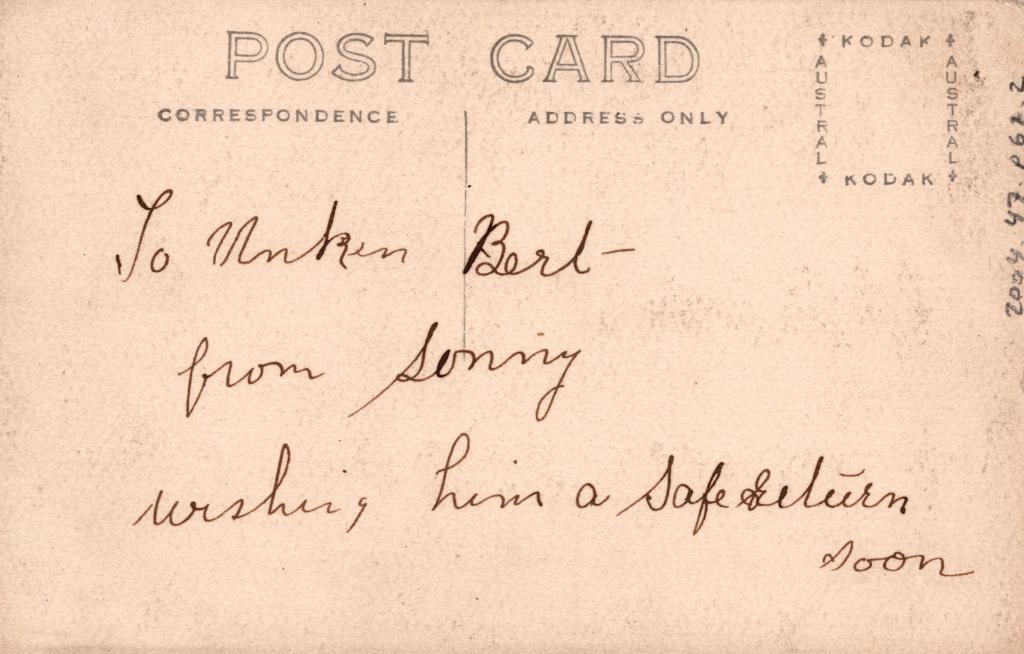 POST CARD
CORRESPONDENCE
ADDRESS ONLY
KODAK
AUSTRAL
AUSTRAL
KODAK
To Unken Bert -
from Sonny
wishing him a safe return
soon
2004.47.P62.2